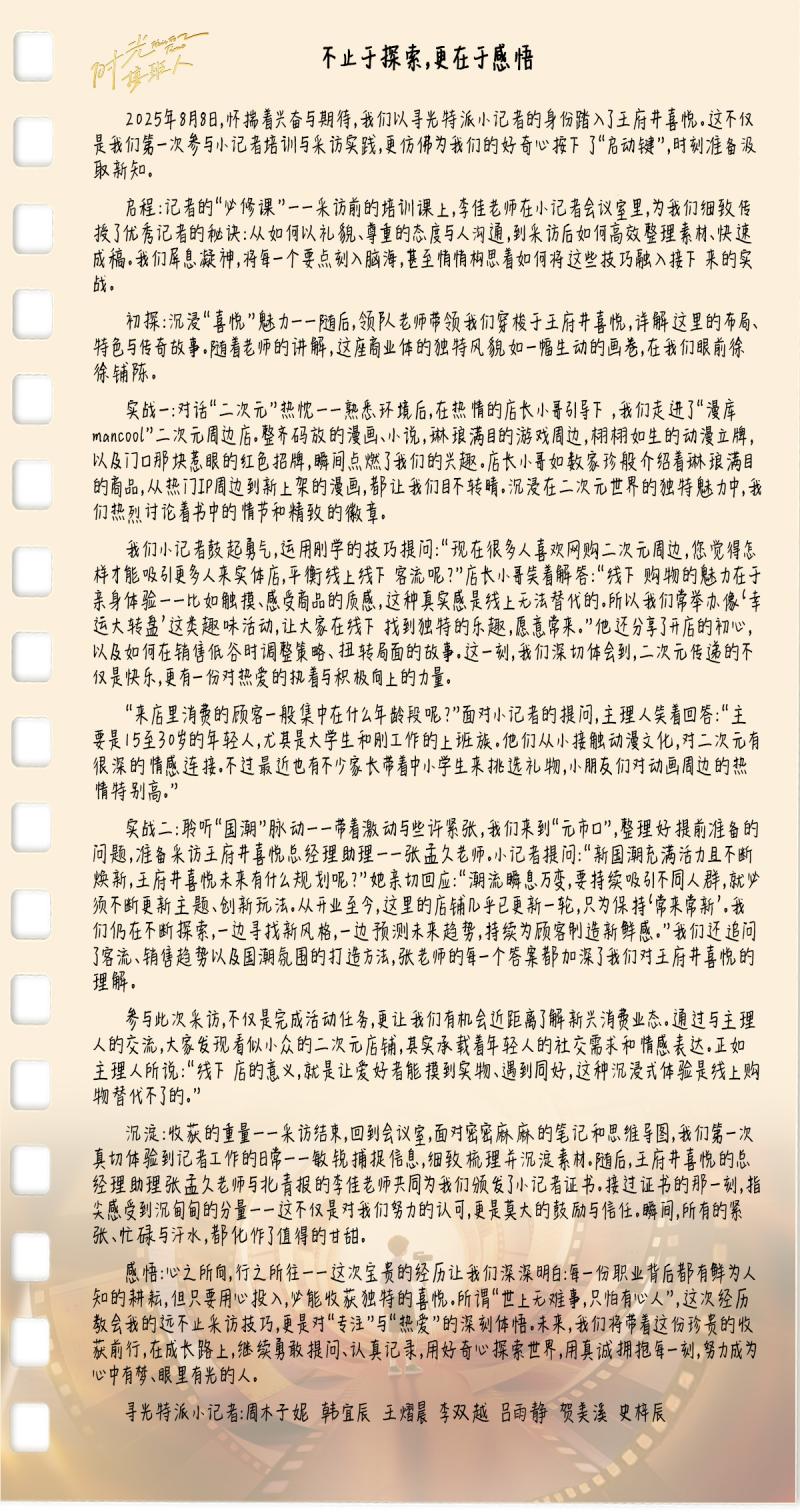 时光
接班人
不止于探索,更在于感悟
2025年8月8日,怀揣着兴奋与期待,我们以寻光特派小记者的身份踏入了王府井喜悦。这不仅
是我们第一次参与小记者培训与采访实践,更仿佛为我们的好奇心按下了“启动键”,时刻准备汲
取新知。
启程:记者的“必修课”——采访前的培训课上,李佳老师在小记者会议室里,为我们细致传
授了优秀记者的秘诀:从如何以礼貌、尊重的态度与人沟通,到采访后如何高效整理素材、快速
成稿。我们屏息凝神,将每一个要点刻入脑海,甚至悄悄构思着如何将这些技巧融入接下来的实
战。
初探:沉浸“喜悦”魅力——随后,领队老师带领我们穿梭于王府井喜悦,详解这里的布局、
特色与传奇故事。随着老师的讲解,这座商业体的独特风貌如一幅生动的画卷,在我们眼前徐
徐铺陈。
实战一:对话“二次元”热忱——熟悉环境后,在热情的店长小哥引导下,我们走进了“漫库
mancool”二次元周边店。整齐码放的漫画、小说,琳琅满目的游戏周边,栩栩如生的动漫立牌,
以及门口那块惹眼的红色招牌,瞬间点燃了我们的兴趣。店长小哥如数家珍般介绍着琳琅满目
的商品,从热门IP周边到新上架的漫画,都让我们目不转睛。沉浸在二次元世界的独特魅力中,我
们热烈讨论着书中的情节和精致的徽章。
我们小记者鼓起勇气,运用刚学的技巧提问:“现在很多人喜欢网购二次元周边,您觉得怎
样才能吸引更多人来实体店,平衡线上线下客流呢?”店长小哥笑着解答:“线下购物的魅力在于
亲身体验——比如触摸、感受商品的质感,这种真实感是线上无法替代的。所以我们常举办像‘幸
运大转盘’这类趣味活动,让大家在线下找到独特的乐趣,愿意常来。”他还分享了开店的初心,
以及如何在销售低谷时调整策略、扭转局面的故事。这一刻,我们深切体会到,二次元传递的不
仅是快乐,更有一份对热爱的执着与积极向上的力量。
“来店里消费的顾客一般集中在什么年龄段呢?”面对小记者的提问,主理人笑着回答:“主
要是15至30岁的年轻人,尤其是大学生和刚工作的上班族。他们从小接触动漫文化,对二次元有
很深的情感连接。不过最近也有不少家长带着中小学生来挑选礼物,小朋友们对动画周边的热
情特别高。”
实战二:聆听“国潮”脉动——带着激动与些许紧张,我们来到“元市口”,整理好提前准备的
问题,准备采访王府井喜悦总经理助理——张孟久老师。小记者提问:“新国潮充满活力且不断
焕新,王府井喜悦未来有什么规划呢?”她亲切回应:“潮流瞬息万变,要持续吸引不同人群,就必
须不断更新主题、创新玩法。从开业至今,这里的店铺几乎已更新一轮,只为保持‘常来常新’。我
们仍在不断探索,一边寻找新风格,一边预测未来趋势,持续为顾客制造新鲜感。”我们还追问
了客流、销售趋势以及国潮氛围的打造方法,张老师的每一个答案都加深了我们对王府井喜悦的
理解。
参与此次采访,不仅是完成活动任务,更让我们有机会近距离了解新兴消费业态。通过与主理
人的交流,大家发现看似小众的二次元店铺,其实承载着年轻人的社交需求和情感表达。正如
主理人所说:“线下店的意义,就是让爱好者能摸到实物、遇到同好,这种沉浸式体验是线上购
物替代不了的。”
沉淀:收获的重量——采访结束,回到会议室,面对密密麻麻的笔记和思维导图,我们第一次
真切体验到记者工作的日常——敏锐捕捉信息,细致梳理并沉淀素材。随后,王府井喜悦的总
经理助理张孟久老师与北青报的李佳老师共同为我们颁发了小记者证书。接过证书的那一刻,指
尖感受到沉甸甸的分量——这不仅是对我们努力的认可,更是莫大的鼓励与信任。瞬间,所有的紧
张、忙碌与汗水,都化作了值得的甘甜。
感悟:心之所向,行之所往——这次宝贵的经历让我们深深明白:每一份职业背后都有鲜为人
知的耕耘,但只要用心投入,必能收获独特的喜悦。所谓“世上无难事,只怕有心人”,这次经历
教会我的远不止采访技巧,更是对“专注”与“热爱”的深刻体悟。未来,我们将带着这份珍贵的收
获前行,在成长路上,继续勇敢提问、认真记录,用好奇心探索世界,用真诚拥抱每一刻,努力成为
心中有梦、眼里有光的人。
寻光特派小记者:周木子妮 韩宜辰 王熠晨 李双越 吕雨静 贺奕溪 史梓辰